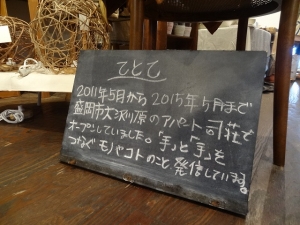 てとて
2011年5月から2015年5月まで
盛岡市大沢川原のアパート司荘で
オープンしていました。「手」と「手」を
つなぐモノやコトのこと、発信しています。